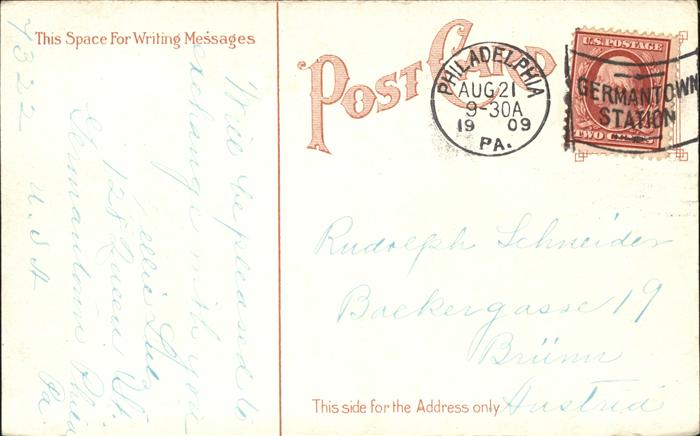 This Space For Writing Messages
POST CARD
PHILADELPHIA
AUG 21
9-30A
1909
PA.
U.S. POSTAGE
TWO
GERMANTOWN
STATION
Will be pleased to
exchange with you
Nellie
128 Queen St.
Germantown Phila
Pa.
U.S.A
4322
Rudolph Schneider
Backergasse 19
Brünn
This side for the Address only
Austria